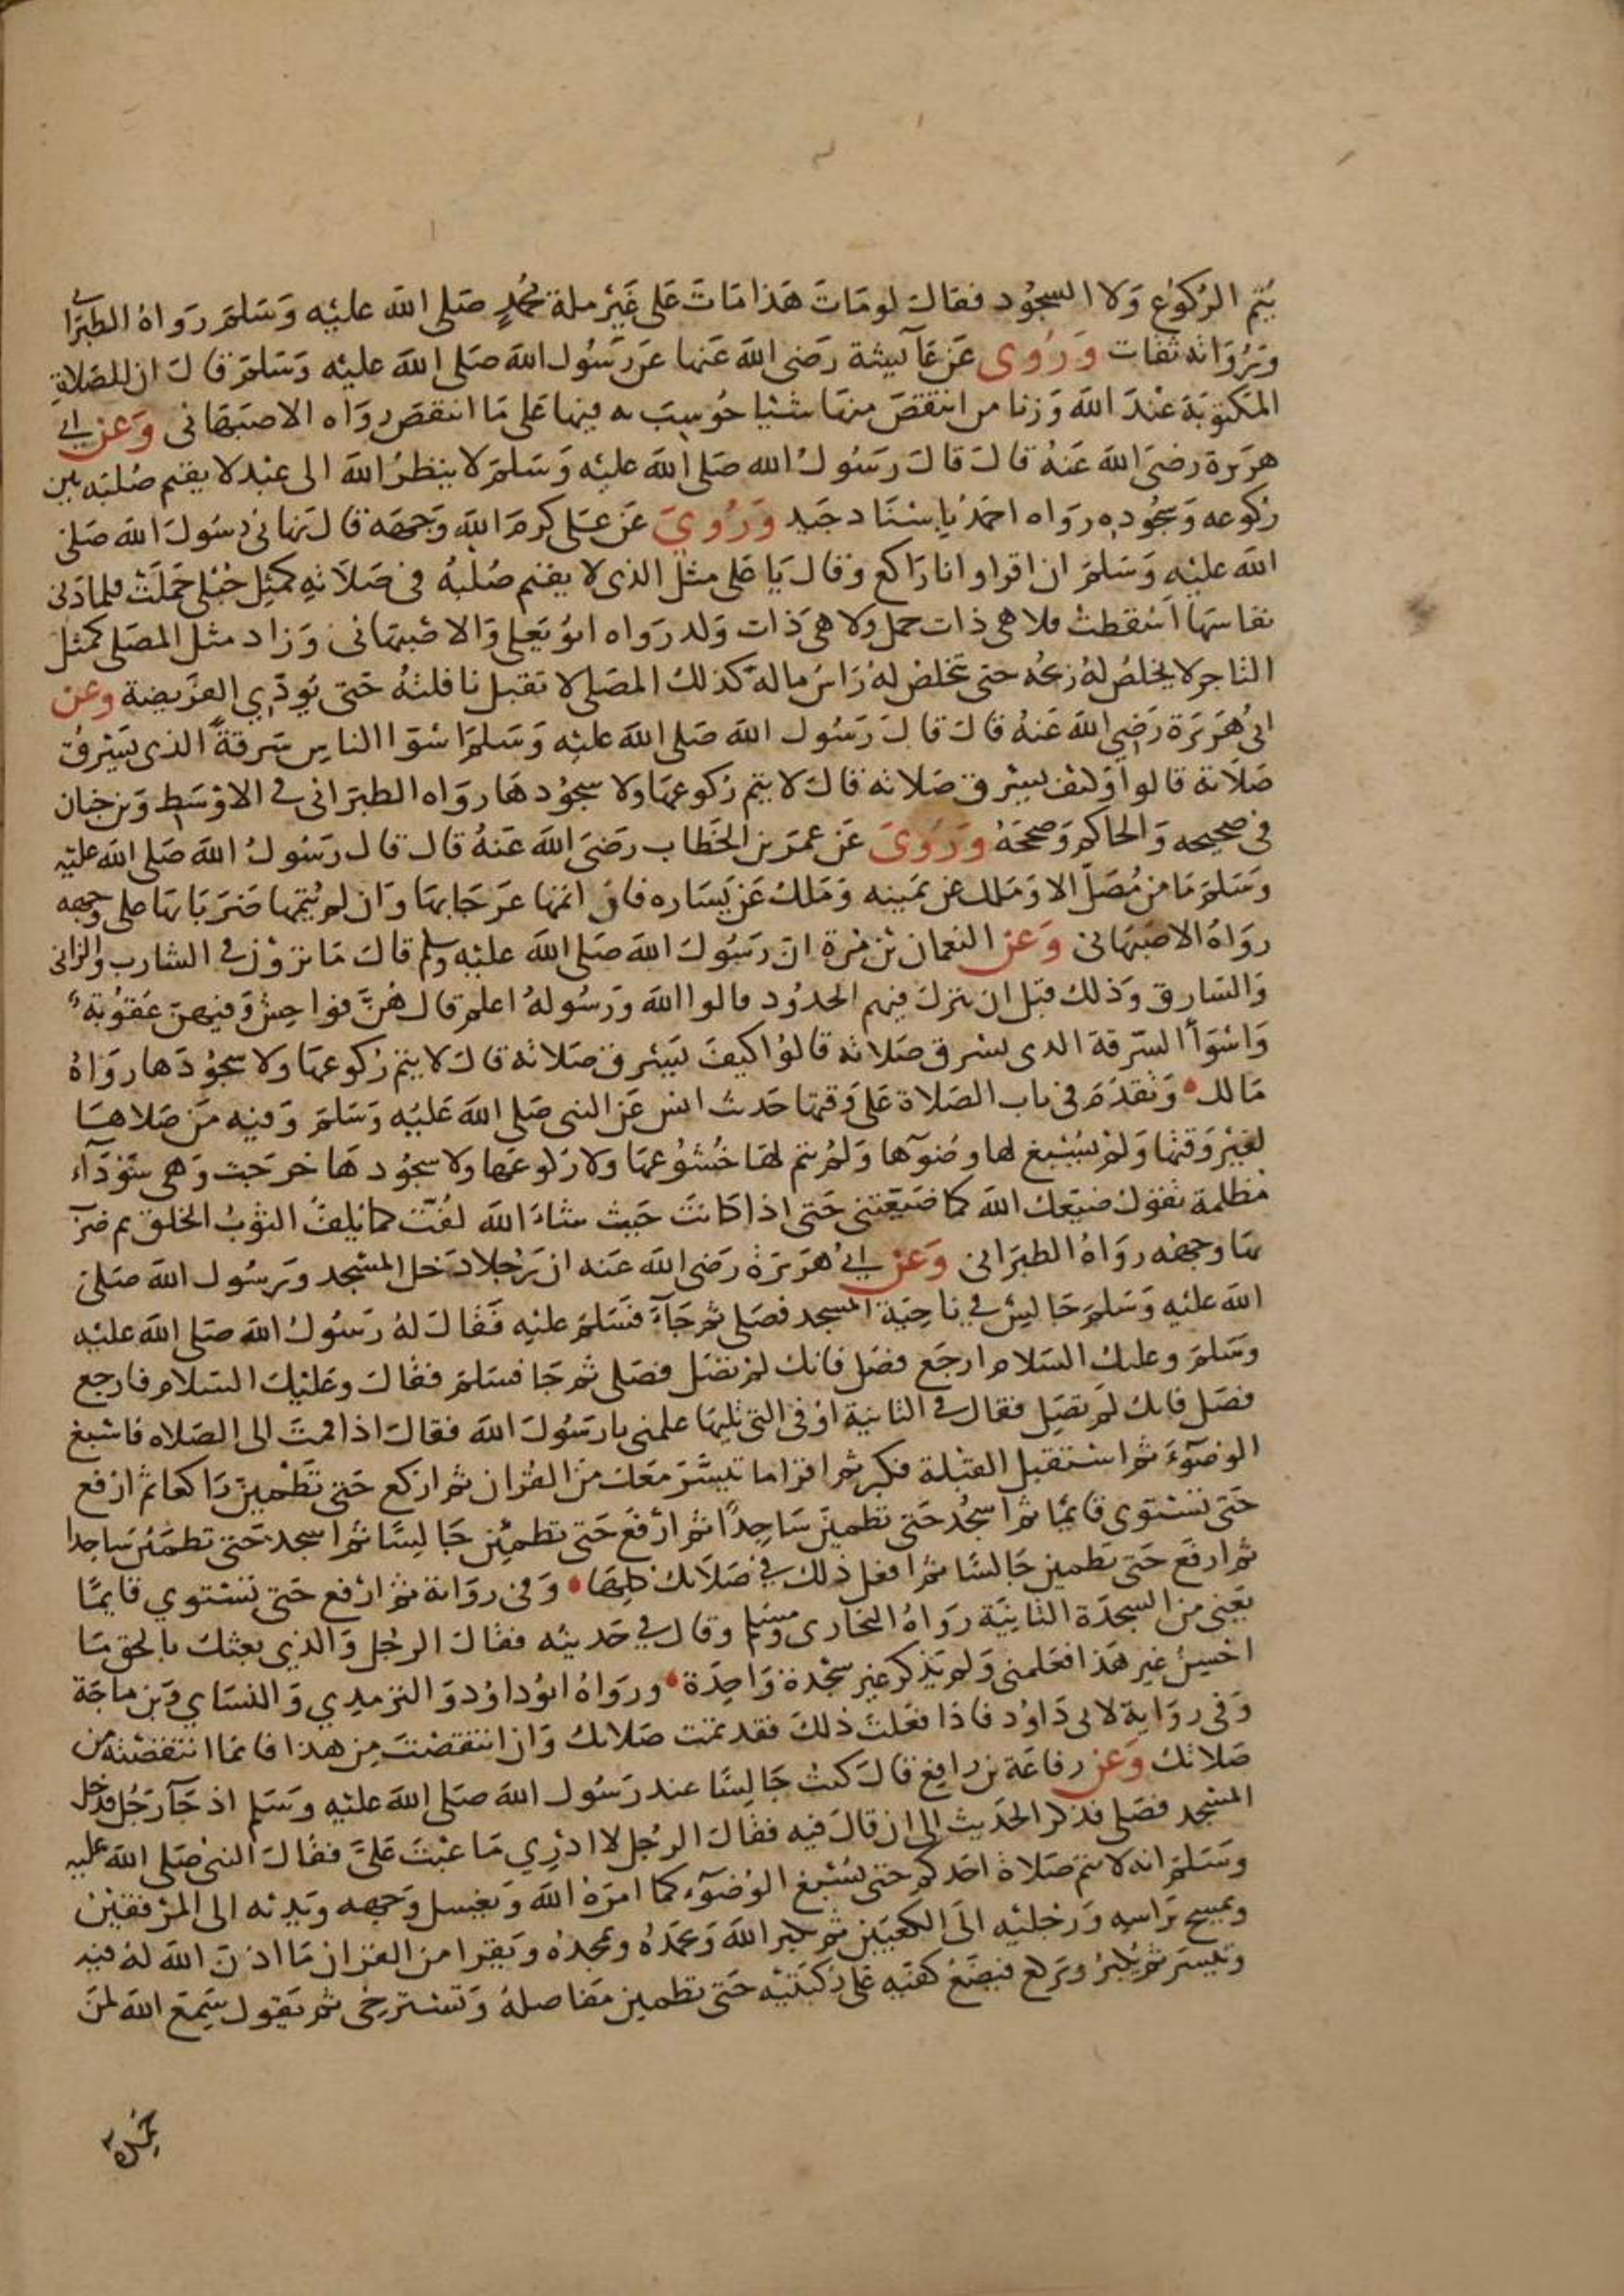 يُتم الرُكوُع وَلا السجُود فقال لومَاتَ هَذا مَاتَ عَلى غَيْر ملة محُمدٍ صَلى الله عليْه وَسَلمَ رَواهُ الطبَرا
وَرُوَاته ثقات وَرُوى عَن عَآئيشة رَضى الله عَنها عَن رَسُول الله صَلى الله عليْه وَسَلمَ قال ان للصَلاةِ
المكتوبَة عنْدَ الله وَزنا من انتقصَ منهَا شئيا حُوسِبَ به فيها عَلى مَا انتقصَ روَاه الاصبَهَانى وَعَن ابي
هرَيرة رضىَ الله عَنهُ قالَ قالَ رَسُولُ الله صَلى الله عليْه وَسَلمَ لا ينظرُ الله الى عبْد لا يقيم صُلبَه بين
رُكوعه وَسجُوده رَواه احمَدُ باسْنَاد جَيد وَرُويَ عَن عَلى كرمَ الله وَجهَه قالَ نهانى رَسُولَ الله صَلى
الله عليْه وَسَلمَ ان اقرا وانا رَاكع وَقالَ يَا عَلى مثلُ الذى لا يقيم صُلبهُ فى صَلاته كمثل حُبْلى حَملَتْ فلما دَنى
نفاسهَا اسْقطتْ فلا هى ذات حمل وَلا هىَ ذات وَلد رَواه ابُو يَعلى وَالاصْبهَانى وَزاد مثل المصَلى كمثل
التاجر لا يخلصُ لهُ رَبحُه حتى تخلصْ لهُ رَاسُ ماله كذلكَ المصَلى لا تقبل نافلتهُ حَتى يُوَدّي الفرَيضة وعن
ابى هُرَيْرَة رَضي الله عَنهُ قالَ قالَ رَسُول الله صَلى الله عليْه وَسَلمَ اسْوَا الناس سَرقةً الذى يَسْرقُ
صَلاته قالوا وَكيْف يسْرق صَلاته قالَ لا يتم رُكوعهَا ولا سجُودهَا رَواه الطبَرَانى في الاوْسَط وَبن حبان
فى صحيحه وَالحاكم وَصححَهُ وَرُوىَ عَن عمَر بن الخَطاب رَضىَ الله عَنهُ قال قال رَسُولُ الله صَلى الله عليْه
وَسَلمَ مَا من مُصَلّ الا وَمَلك عن يمَينه وَمَلكُ عَن يَسَاره فان اتمها عَرجَا بهَا وَان لم يُتمها ضَرَبَا بهَا على وَجهه
روَاهُ الاصبَهانى وَعَن النعمان بْن مُرة انّ رَسُولَ الله صَلى الله عليْه وسلم قالَ مَا ترَوْن في الشارب والزانى
وَالسَارق وَذلك قبْل ان ينزلَ فيهم الحدُود قالوا الله وَرَسُولهُ اعلم قال هُنَّ فوَاحِش وَفيهنّ عَقوُبة
وَاسْوَأ السَرقة الذى يسْرق صَلاته قالوُا كيفَ يَسْرق صَلاته قالَ لا يتم رُكوعهَا ولا سجُودَها روَاهُ
مَالك • وَتقدّمَ فى باب الصَلاة عَلى وَقتهَا حَديث انس عَن النبى صَلى الله عَليْه وَسَلمَ وَفيْه مَن صَلاهَا
لغيْر وَقتهَا وَلمْ يُسْبغ لها وضُوَٓها وَلمُ يتم لهَا خُشوُعهَا ولا ركوعهَا ولا سجُودهَا خرَجَتْ وَهى سَوْدَآء
مُظلمة تقوُل ضيّعَك الله كما ضَيّعْتنى حَتى اذا كانتَ حَيث شاءَ الله لُفّت كما يُلفُ الثوْبُ الخلقُ ثم ضربَ
بهَا وجهُه روَاهُ الطبَرَانى وَعَن ابي هُرَيرَة رَضى الله عَنه ان رَجُلا دَخل المسْجد وَرسُول الله صَلى
الله عليْه وَسَلمَ جَالِسْ في ناحيَة المسجد فصَلى ثم جَآءَ فسَلمَ عليْه فَقالَ لهُ رَسُولُ الله صَلى الله عليْه
وسَلمَ وعليك السَلام ارجَع فصَل فانك لم تصَل فصَلى ثم جَا فسَلمَ فقالَ وعَليْكَ السَلام فارجع
فصَل فانك لَم تصَل فقال في الثانية اوْ فى التى تليهَا علمنى يا رَسُولَ الله فقالَ اذا قمتَ الى الصَلاه فاسْبغ
الوضوَٓءَ ثم اسْتقبل القبْلة فكبر ثم اقرا ما تيسَّر مَعَك من القرآن ثم اركع حَتى تَطْمِينَ رَاكعا ثم ارفع
حَتى تسْتوى قايمًا ثم اسْجُد حَتى تطمينَ سَاجِدًا ثم ارْفَع حَتى تطمئِن جَالِسًا ثم اسجد حَتى تطمَئن سَاجدا
ثم ارفَع حَتى تطمين جَالسًا ثم افعل ذلك في صَلاتكَ كلهَا • وَفى روَاية ثم ارْفع حَتى تسْتوي قايمًا
يَعنى من السجدَة الثانِيَة رَواهُ البخارى ومُسْلم وقال في حَديثه فقالَ الرجُل وَالذي بعثكَ بالحق مَا
احْسِنُ غيرَ هَذا فعَلمنى وَلم يَذكر غير سجْدة وَاحِدَة • وروَاهُ ابوُ داوُد وَالترمِدِي وَالنسَاي وَبن ماجَة
وَفى روَاية لابى دَاوُد فاذا فعَلتَ ذلكَ فقد تمّت صَلاتك وَان انتقصْتَ مِن هذا فانمَا انتقصْتهُ من
صَلاتكَ وَعَن رفاعَة بن رافع قالَ كنتُ جَالِسًا عند رَسُول الله صَلى الله عليْه وَسَلم اذ جَآ رَجُل فدخل
المسْجد فصَلى فذكرَ الحَديث الى ان قالَ فيه فقالَ الرجُل لا ادْرِي مَا عبْتَ عَلىَّ فقالَ النبى صَلى الله عليه
وسَلمَ انه لا تتم صَلاة احَدكم حَتى يُسْبغ الوُضوَٓء كما امرَهُ الله وَيغسل وَجهه وَيدَيْه الى المرْفقيْن
ويمسح برَاسه وَرجْليْه الَى الكعبَيْن ثم يكبر الله وَيحمَدُهُ ويمجدهُ وَيَقرا من القرآن مَا اذن الله لهُ فيه
وتيسر ثم يُكبرُ وَيَركع فيَضَعُ كفيْه عَلى رُكبَتيْه حَتى تطمين مَفاصلهُ وَتسْترخي ثم يَقول سَمِعَ الله لمَن
حمده